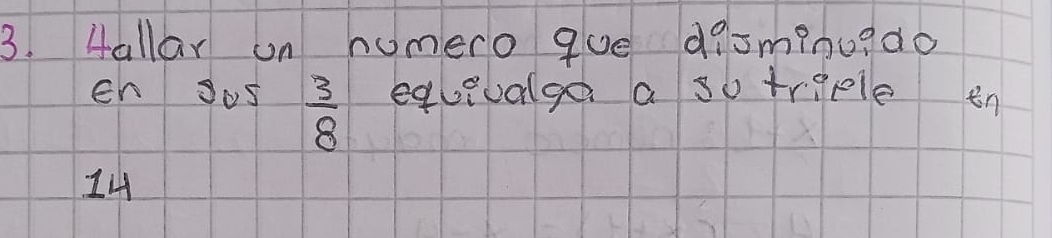 3. Hallar un numero que disminuido
en sus 3/8 equivalga a su triple en
14